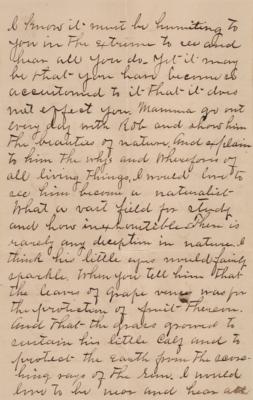 I know it must be humiting to
you in the extreme to see and
hear all you do. Yet it may
be that you have become so
accustomed to it that it does
not effect you. Mamma go out
every day with Rob and show him
the beauties of nature. And explain
to him the whys and Wherefores of
all living things, I would love to
see him become a naturalist
What a vast field for study
and how inexhoutible. There is
rarely any deception in nature. I
think his little eyes would fairly
sparkle. When you tell him that
the leaves of grape vines was for
the protiction of fruit therein.
And that the grass growed to
sustain his little Calf and to
protect the Earth from the scorc-
hing rays of the sun. I would
love to be near and hear all